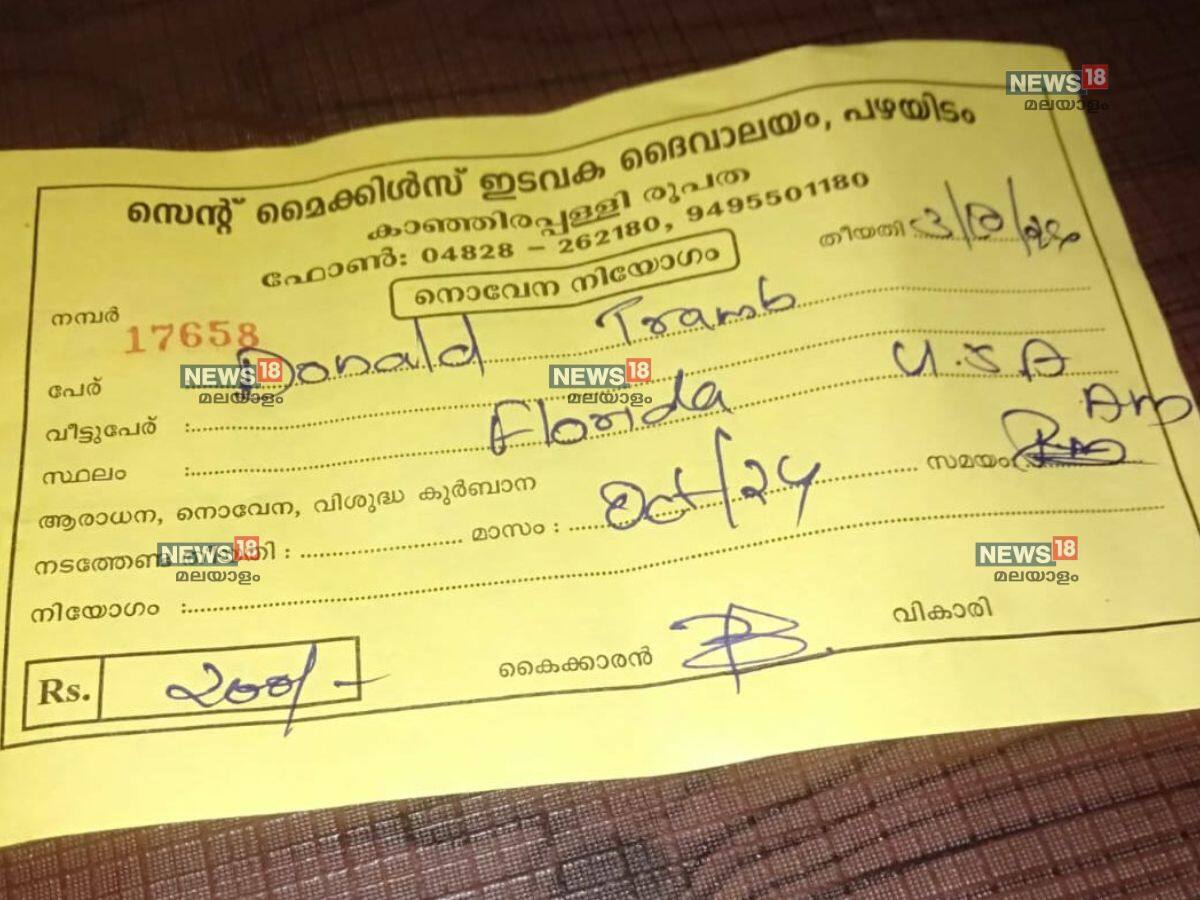 NEWS18
മലയാളം
സെന്റ് മൈക്കിൾസ് ഇടവക ദൈവാലയം, പഴയിടം
കാഞ്ഞിരപ്പള്ളി രൂപത
ഫോൺ: 04828 – 262180, 9495501180
തീയതി
നൊവേന നിയോഗം
നമ്പർ 17658
പേര് Donald Tramb
NEWS18
മലയാളം
NEWS18
മലയാളം
വീട്ടുപേര് :
സ്ഥലം : Florida U.S.A
ആരാധന, നൊവേന, വിശുദ്ധ കുർബാന
നടത്തേണ്ട : മാസം : Oct/24 സമയം
NEWS18
മലയാളം
NEWS18
മലയാളം
നിയോഗം :
Rs. 200/- കൈക്കാരൻ വികാരി